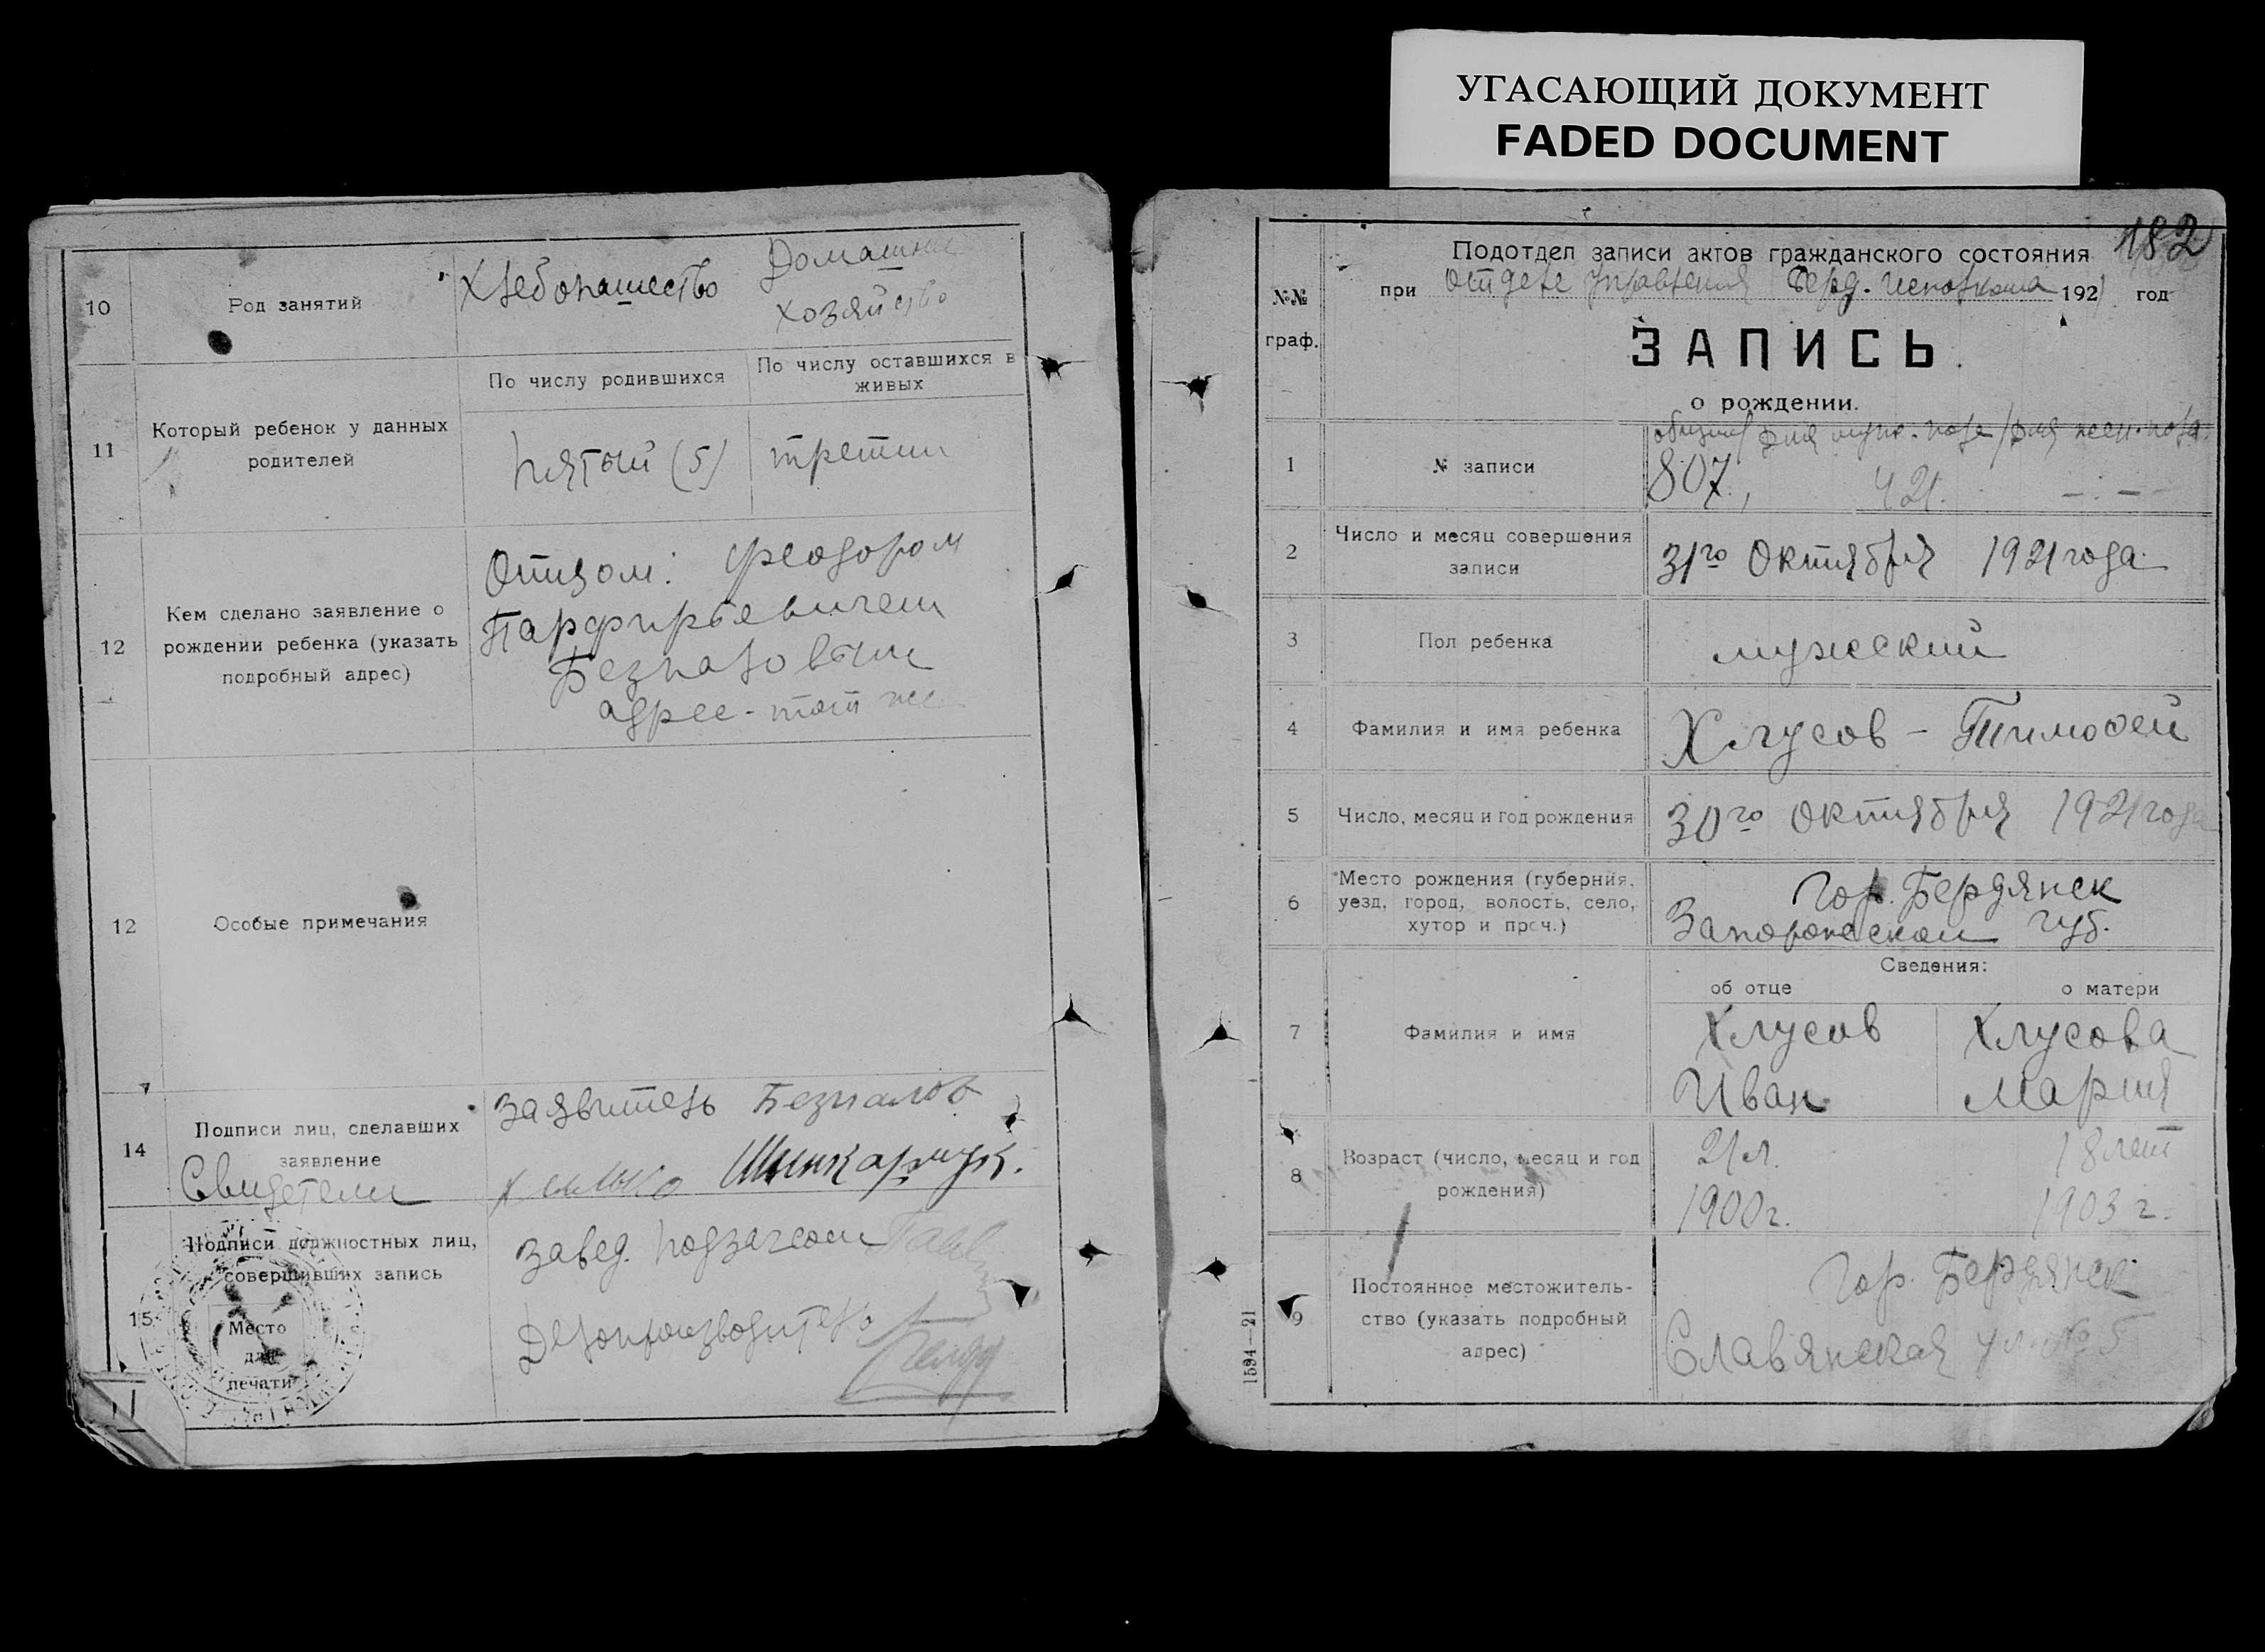 УГАСАЮЩИЙ ДОКУМЕНТ
FADED DOCUMENT
10 Род занятий Хлебопашество Домашнее
хозяйство
11 Который ребенок у данных родителей
По числу родившихся По числу оставшихся в живых
пятый (5) третий
12 Кем сделано заявление о
рождении ребенка (указать
подробный адрес)
Отцом: Феодором
Парфирьевичем
Безпаловым
адрес - тот же
12 Особые примечания
14 Подписи лиц, сделавших
заявление
Свидетели
Заявитель Безпалов
Шинкарчук.
15 Подписи должностных лиц,
совершивших запись
Место
для
печати
Завед. подзагсом
Делопроизводитель
182
№№
граф.
Подотдел записи актов гражданского состояния
при Отделе Управления Берд. Исполкома 1921 год
ЗАПИСЬ
о рождении.
общий/для мужс. пола/для жен. пола.
1 № записи 807, 421. —
2 Число и месяц совершения
записи
31го Октября 1921 года.
3 Пол ребенка мужеский
4 Фамилия и имя ребенка Хлусов - Тимофей
5 Число, месяц и год рождения 30го октября 1921 года
6 Место рождения (губерния,
уезд, город, волость, село,
хутор и проч.)
Гор. Бердянск
Запорожской губ.
Сведения:
об отце о матери
7 Фамилия и имя
Хлусов Хлусова
Иван Мария
8 Возраст (число, месяц и год
рождения)
21 л. 18 лет
1900 г. 1903 г.
9 Постоянное местожитель-
ство (указать подробный
адрес)
Гор. Бердянск
Славянская ул. № 5
1594—21